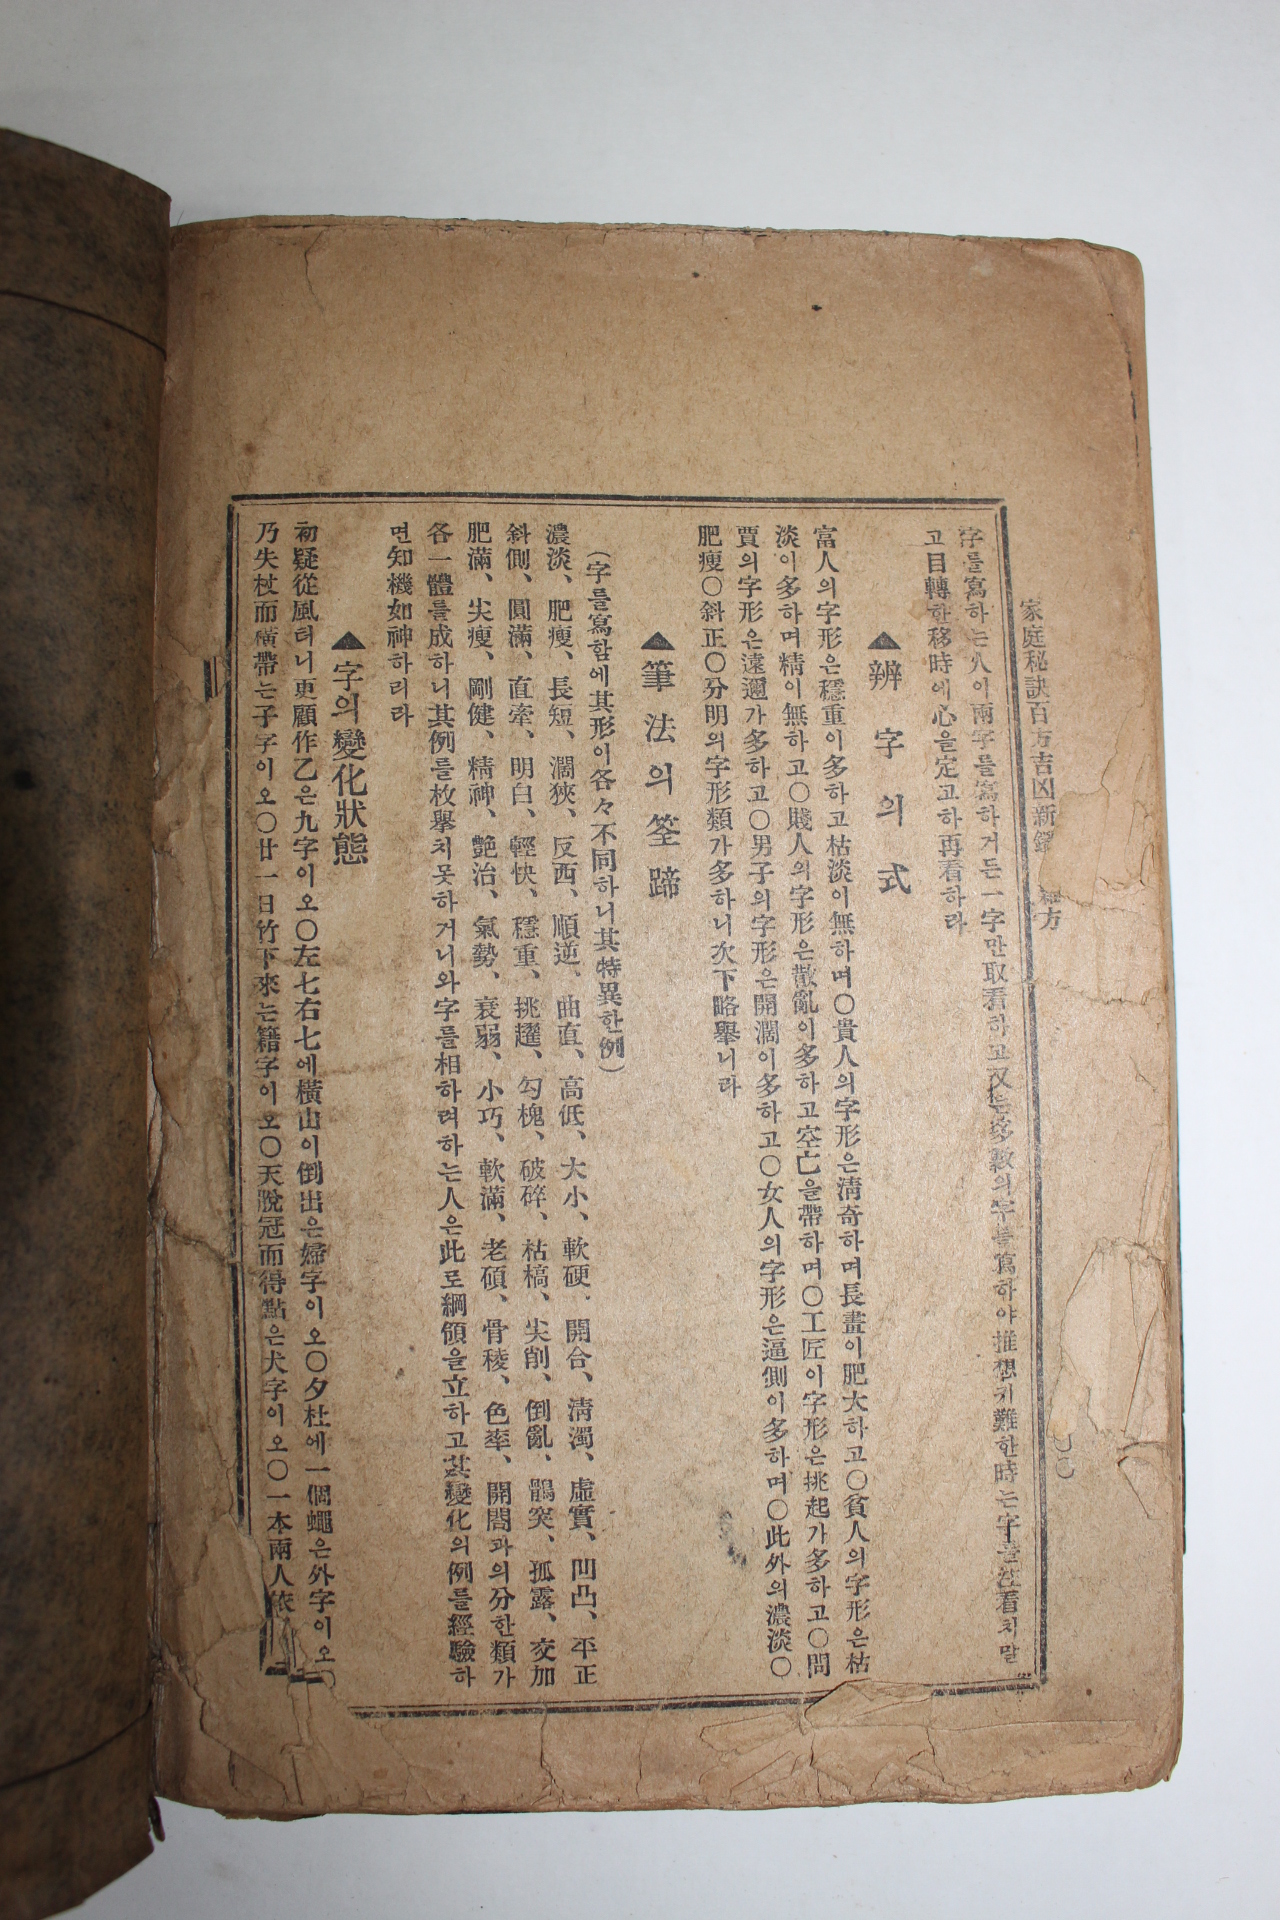 家庭秘訣百方吉凶新鑑
字를寫하는人이兩字를寫하거든一字만取看하고又는多數의字를寫하야推想키難한時는字를注看치말
고目轉한移時에心을定고하再看하라
▲辨字의式
富人의字形은穩重이多하고枯淡이無하며○貴人의字形은淸奇하며長畫이肥大하고○貧人의字形은枯
淡이多하며精이無하고○賤人의字形은散亂이多하고空亡을帶하며○工匠이字形은挑起가多하고○問
賈의字形은遠邇가多하고○男子의字形은開濶이多하고○女人의字形은逼側이多하며○此外의濃淡○
肥瘦○斜正○分明의字形類가多하니次下略擧니라
▲筆法의筌蹄
(字를寫함에其形이各々不同하니其特異한例)
濃淡、肥瘦、長短、濶狹、反西、順逆、曲直、高低、大小、軟硬、開合、淸濁、虛實、凹凸、平正
斜側、圓滿、直牽、明白、輕快、穩重、挑趯、勾槐、破碎、枯槁、尖削、倒亂、鶻突、孤露、交加
肥滿、尖瘦、剛健、精神、艶治、氣勢、衰弱、小巧、軟滿、老碩、骨稜、色率、開閤과의分한類가
各一體를成하니其例를枚擧치못하거니와字를相하려하는人은此로綱領을立하고其變化의例를經驗하
면知機如神하리라
▲字의變化狀態
初疑從風터니更顧作乙은九字이오○左七右七에橫山이倒出은婦字이오○夕杜에一個蠅은外字이오○
乃失杖而橫帶는子字이오○廿一日竹下來는籍字이오○天脫冠而得點은犬字이오○一本兩人依